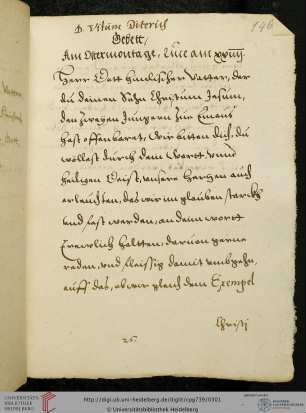 D. Vitum Diterich
146
Gebett,
Am Ostermontage, Luce am xxiiij.
Herr Gott himlischer Vatter, der
du deinen Sohn Christum Jesum,
den zweyen Jüngern zue Emaus
hast offenbaret, Wir bitten dich, du
wöllest durch dein Wortt vnnd
heiligen Geist, vnsere hertzen auch
erleuchten, das wir im glauben starckh
vnd fest werden, an deim wortt
trewlich haltten, daruon gerne
reden, vnd fleissig damit vmbgehn,
auff das, ob wir gleich dem Exempel
Christj
25
UNIVERSITÄTS-
BIBLIOTHEK
HEIDELBERG
http://digi.ub.uni-heidelberg.de/diglit/cpg739/0301
© Universitätsbibliothek Heidelberg